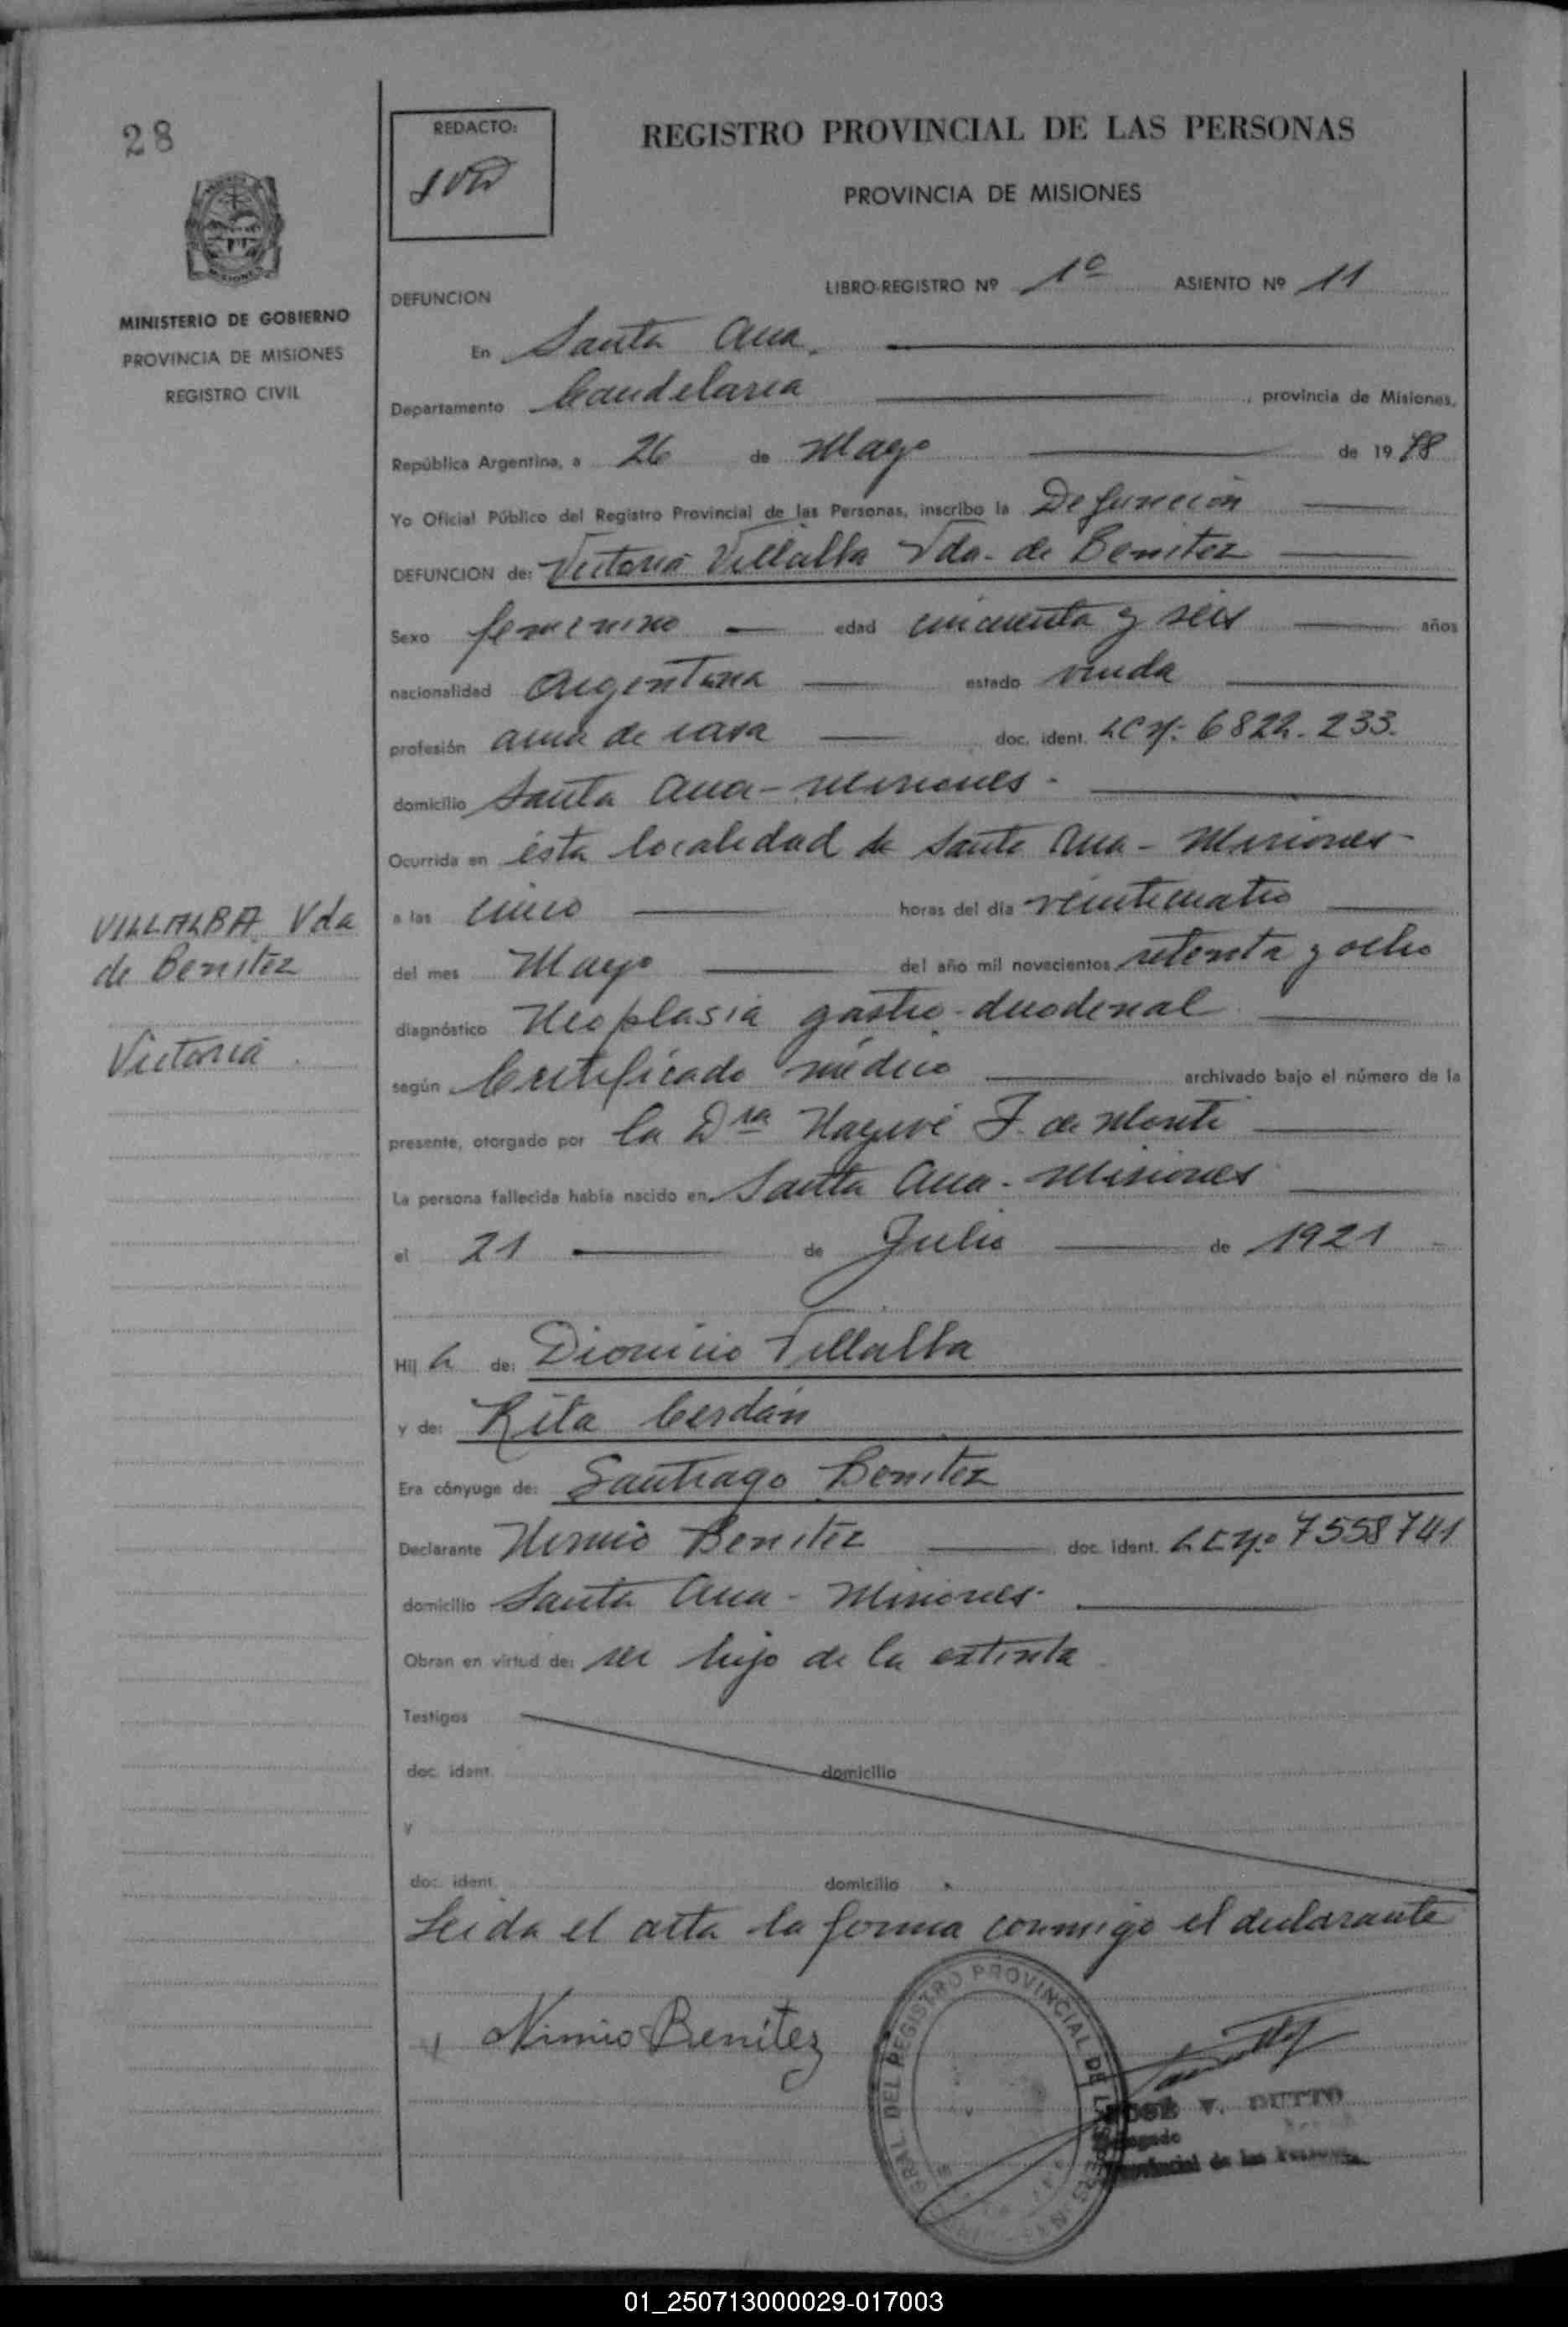 28
REDACTO:
REGISTRO PROVINCIAL DE LAS PERSONAS
PROVINCIA DE MISIONES
MINISTERIO DE GOBIERNO
PROVINCIA DE MISIONES
REGISTRO CIVIL
LIBRO-REGISTRO Nº 1º ASIENTO Nº 11
DEFUNCION
En Santa Ana.
Departamento Candelaria, provincia de Misiones,
República Argentina, a 26 de Mayo de 1978
Yo Oficial Público del Registro Provincial de las Personas, inscribo la Defunción
DEFUNCION de: Victoria Villalba Vda. de Benitez
Sexo femenino — edad cincuenta y seis años
nacionalidad Argentina estado viuda
profesión ama de casa doc. ident. LC Nº: 6822.233.
domicilio Santa Ana - Misiones -
Ocurrida en ésta localidad de Santa Ana - Misiones -
a las cinco horas del día veinticuatro
del mes Mayo del año mil novecientos setenta y ocho
diagnóstico Neoplasia gastro-duodenal
según Certificado médico archivado bajo el número de la
presente, otorgado por la Dra F. de Monti
La persona fallecida había nacido en Santa Ana - Misiones
el 21 de Julio de 1921 -
Hij a de: Dionicio Villalba
y de: Rita Cerdán
Era cónyuge de: Santiago Benitez
Declarante Nimio Benitez doc. ident. LE Nº 7558741
domicilio Santa Ana - Misiones.
Obran en virtud de: ser hijo de la extinta
Testigos
doc. ident. domicilio
y
doc. ident. domicilio
Leida el acta la firma conmigo el declarante
Nimio Benítez
VILLALBA Vda
de Benitez
Victoria.
GRAL DEL REGISTRO PROVINCIAL DE LAS PERSONAS
JOSE V. DUTTO
Provincial de las Personas
01_250713000029-017003